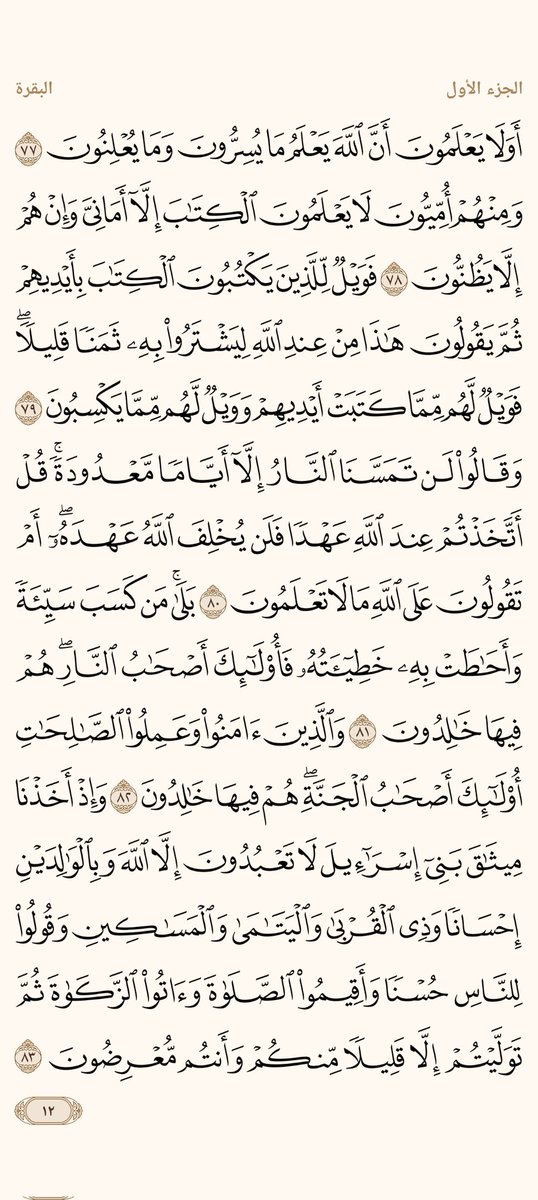 الجزء الأول
البقرة
أَوَلَا يَعۡلَمُونَ أَنَّ ٱللَّهَ يَعۡلَمُ مَا يُسِرُّونَ وَمَا يُعۡلِنُونَ ٧٧
وَمِنۡهُمۡ أُمِّيُّونَ لَا يَعۡلَمُونَ ٱلۡكِتَٰبَ إِلَّآ أَمَانِيَّ وَإِنۡ هُمۡ
إِلَّا يَظُنُّونَ ٧٨ فَوَيۡلٞ لِّلَّذِينَ يَكۡتُبُونَ ٱلۡكِتَٰبَ بِأَيۡدِيهِمۡ
ثُمَّ يَقُولُونَ هَٰذَا مِنۡ عِندِ ٱللَّهِ لِيَشۡتَرُواْ بِهِۦ ثَمَنٗا قَلِيلٗاۖ
فَوَيۡلٞ لَّهُم مِّمَّا كَتَبَتۡ أَيۡدِيهِمۡ وَوَيۡلٞ لَّهُم مِّمَّا يَكۡسِبُونَ ٧٩
وَقَالُواْ لَن تَمَسَّنَا ٱلنَّارُ إِلَّآ أَيَّامٗا مَّعۡدُودَةٗۚ قُلۡ
أَتَّخَذۡتُمۡ عِندَ ٱللَّهِ عَهۡدٗا فَلَن يُخۡلِفَ ٱللَّهُ عَهۡدَهُۥٓۖ أَمۡ
تَقُولُونَ عَلَى ٱللَّهِ مَا لَا تَعۡلَمُونَ ٨٠ بَلَىٰۚ مَن كَسَبَ سَيِّئَةٗ
وَأَحَٰطَتۡ بِهِۦ خَطِيٓـَٔتُهُۥ فَأُوْلَٰٓئِكَ أَصۡحَٰبُ ٱلنَّارِۖ هُمۡ
فِيهَا خَٰلِدُونَ ٨١ وَٱلَّذِينَ ءَامَنُواْ وَعَمِلُواْ ٱلصَّٰلِحَٰتِ
أُوْلَٰٓئِكَ أَصۡحَٰبُ ٱلۡجَنَّةِۖ هُمۡ فِيهَا خَٰلِدُونَ ٨٢ وَإِذۡ أَخَذۡنَا
مِيثَٰقَ بَنِيٓ إِسۡرَٰٓءِيلَ لَا تَعۡبُدُونَ إِلَّا ٱللَّهَ وَبِٱلۡوَٰلِدَيۡنِ
إِحۡسَانٗا وَذِي ٱلۡقُرۡبَىٰ وَٱلۡيَتَٰمَىٰ وَٱلۡمَسَٰكِينِ وَقُولُواْ
لِلنَّاسِ حُسۡنٗا وَأَقِيمُواْ ٱلصَّلَوٰةَ وَءَاتُواْ ٱلزَّكَوٰةَ ثُمَّ
تَوَلَّيۡتُمۡ إِلَّا قَلِيلٗا مِّنكُمۡ وَأَنتُم مُّعۡرِضُونَ ٨٣
١٢